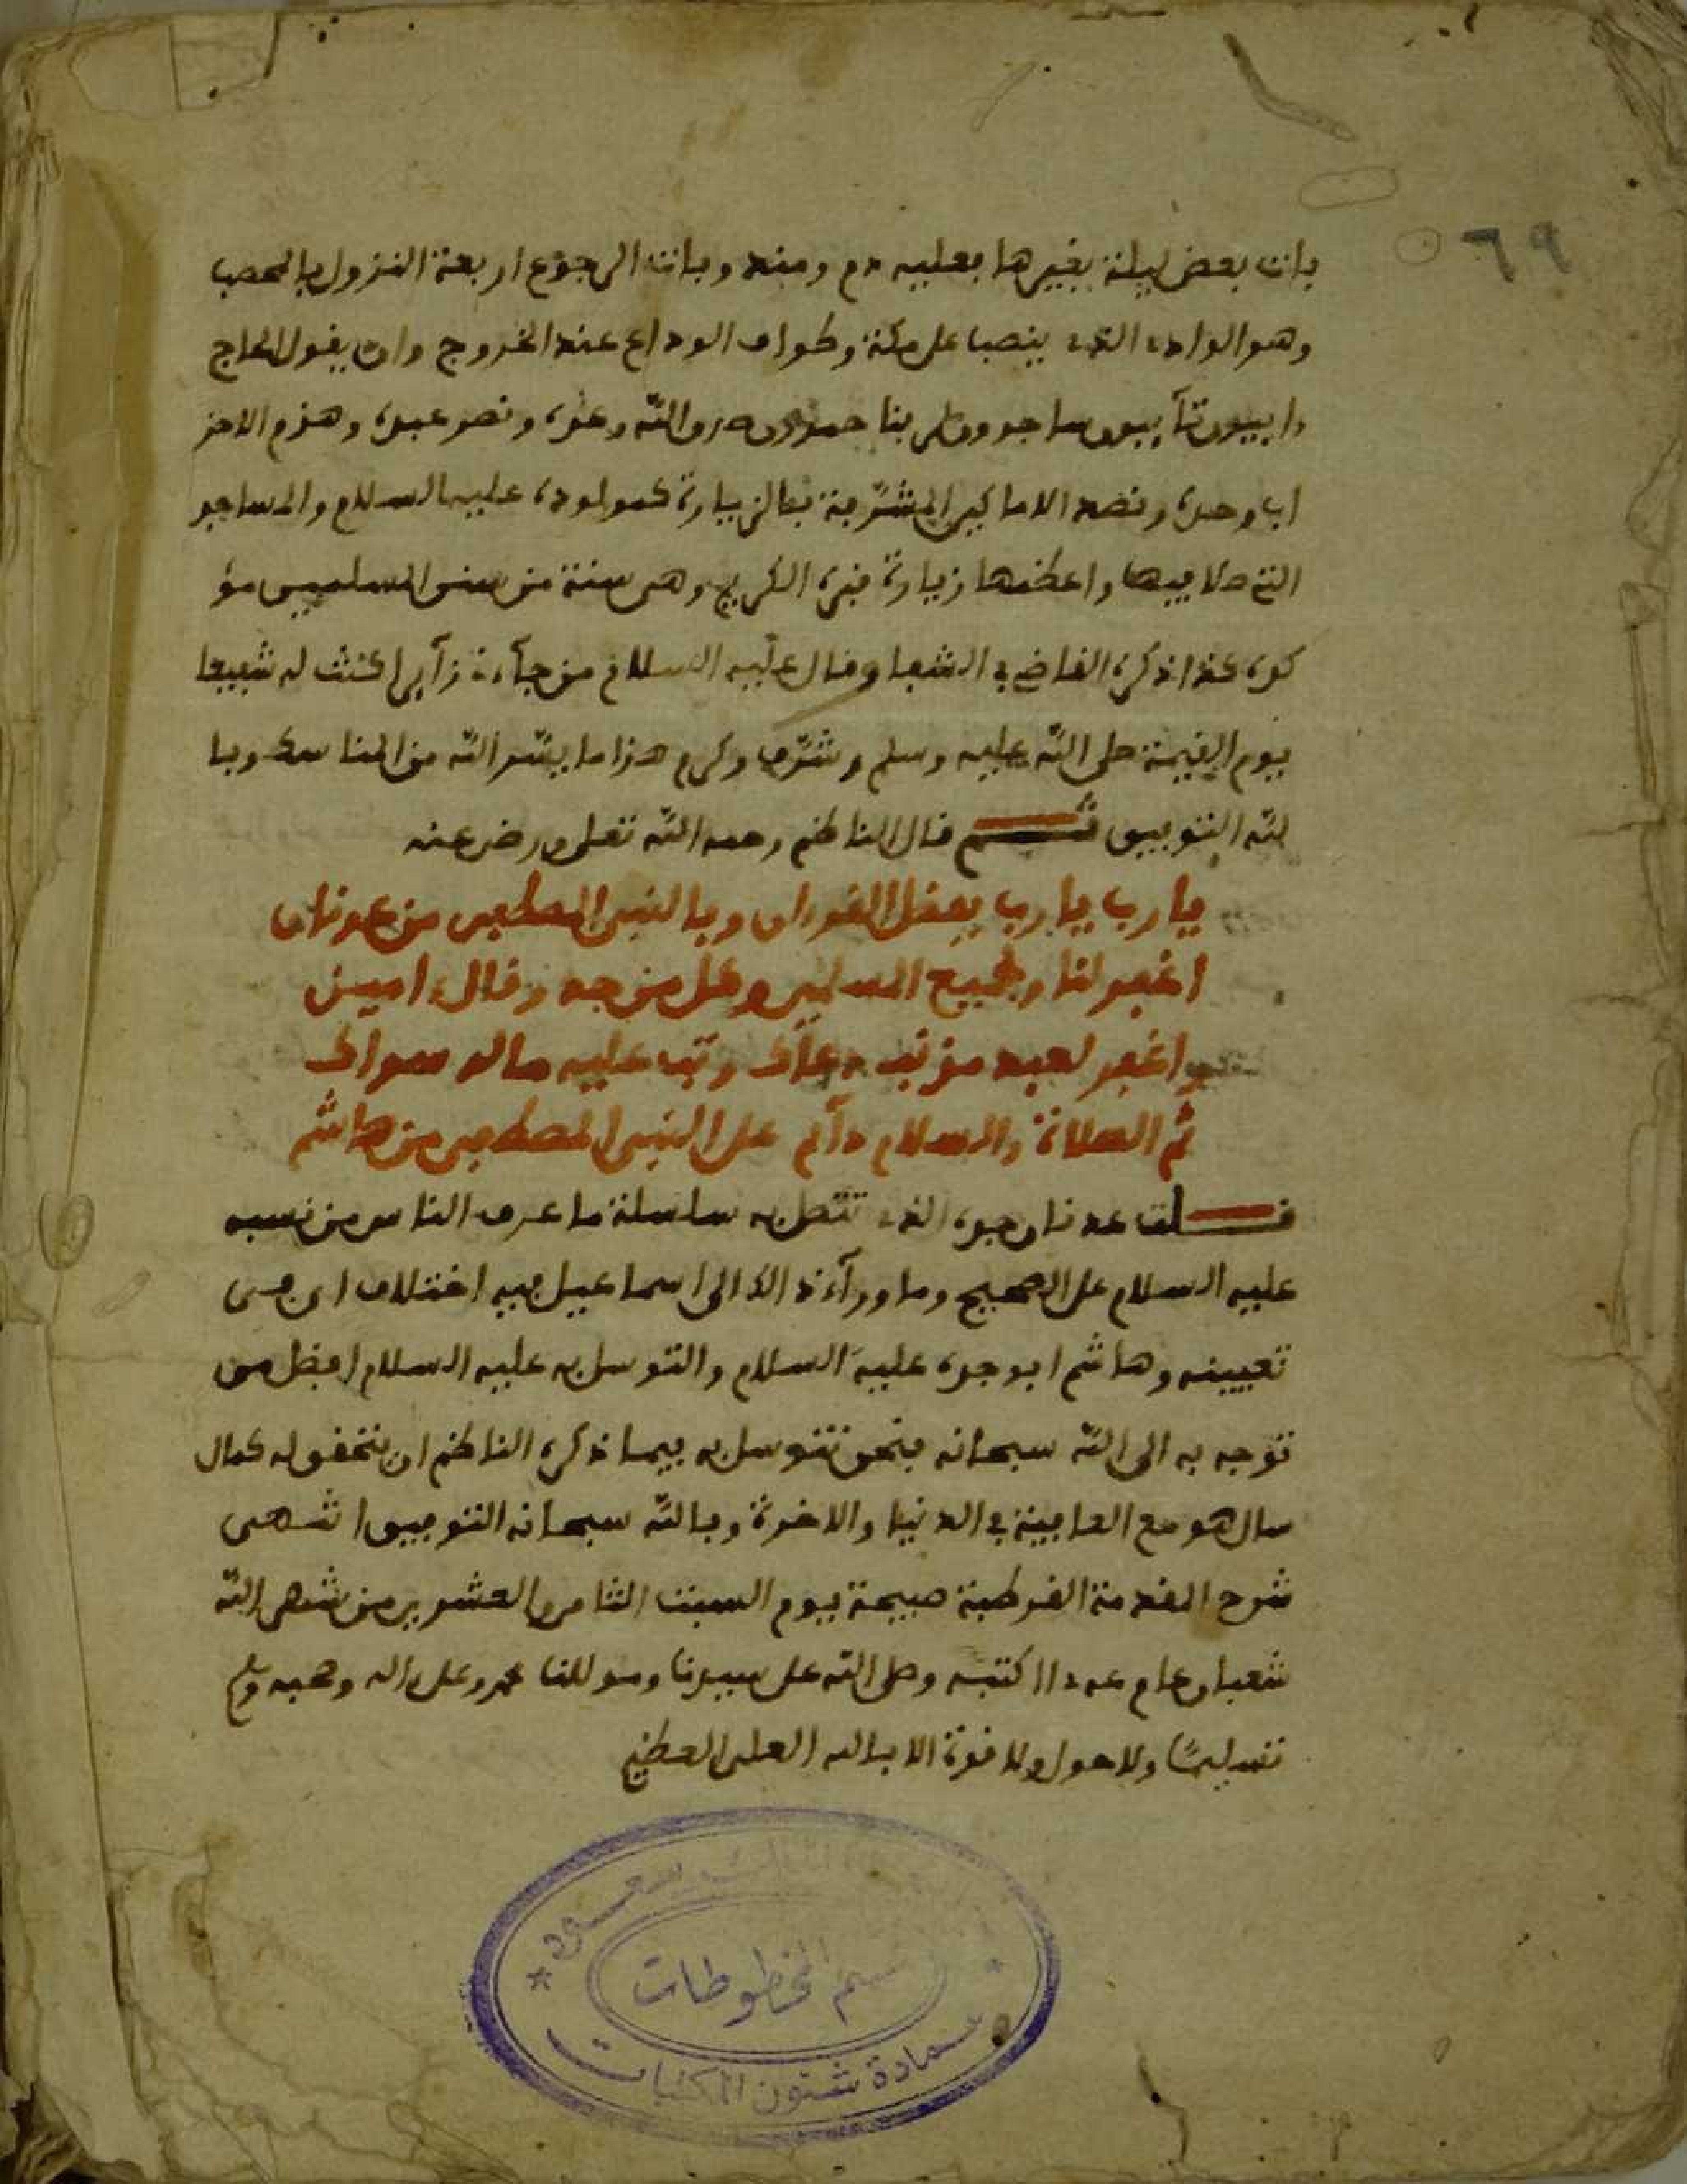 ٦٩
بات بعض ليلة بغيرها بعليه دم ومنه وبات الرجوع اربعة النزول بالمحصب
وهو الوادي الذي ينصب على مكة وطواف الوداع عند الخروج وان يقول الحاج
ءاييبون تآيبون ساجدون لربنا حمدون صدق الله وعده ونصر عبده وهزم الاحز
اب وحده وقصد الاماكين المشرفة بالزيارة كمولوده عليه السلام والمساجد
التي صلا فيها واعظمها زيارة قبره الكريم وهي سنة من سنن المسلمين مؤ
كدة كذا ذكره القاضي في الشفا وقال عليه السلام من جآءنى زآيرا كنت له شفيعا
يوم القيمة صلى الله عليه وسلم وشرف وكرم هذا ما يسر الله من المناسك وبا
لله التوفيق ثم قال الناظم رحمه الله تعلى ورضي عنه
يا رب يا رب بفضل القرءان وبالنبي المصطفى من عدنان
اغفر لنا ولجميع المسلمين وكل من جد وقال ءامين
واغفر لعبد مذنب دعاك وتب عليه ماله سواك
ثم الصلاة والسلام دآيم على النبي المصطفى من هاشم
قلت عدنان جده الذي تتصل به سلسلة ما عرف الناس من نسبه
عليه السلام على الصحيح وما ورآء ذالك الى اسماعيل فيه اختلاف اى فى
تعيينه وهاشم ابو جده عليه السلام والتوسل به عليه السلام افضل من
توجه به الى الله سبحانه فنحن نتوسل به فيما ذكره الناظم ان يتحفوله كمال
سال هو مع العافية في الدنيا والاخرة وبالله سبحانه التوفيق انتهى
شرح المقدمة القرطبية صبيحة يوم السبت الثامن والعشرين من شهر الله
شعبان عام كتبه وصلى الله على سيدنا ومولنا محمد وعلى ءاله وصحبه وسلم
تسليما ولا حول ولا قوة الا بالله العلي العظيم
سعود
قسم المخطوطات
عمادة شئون المكتبات